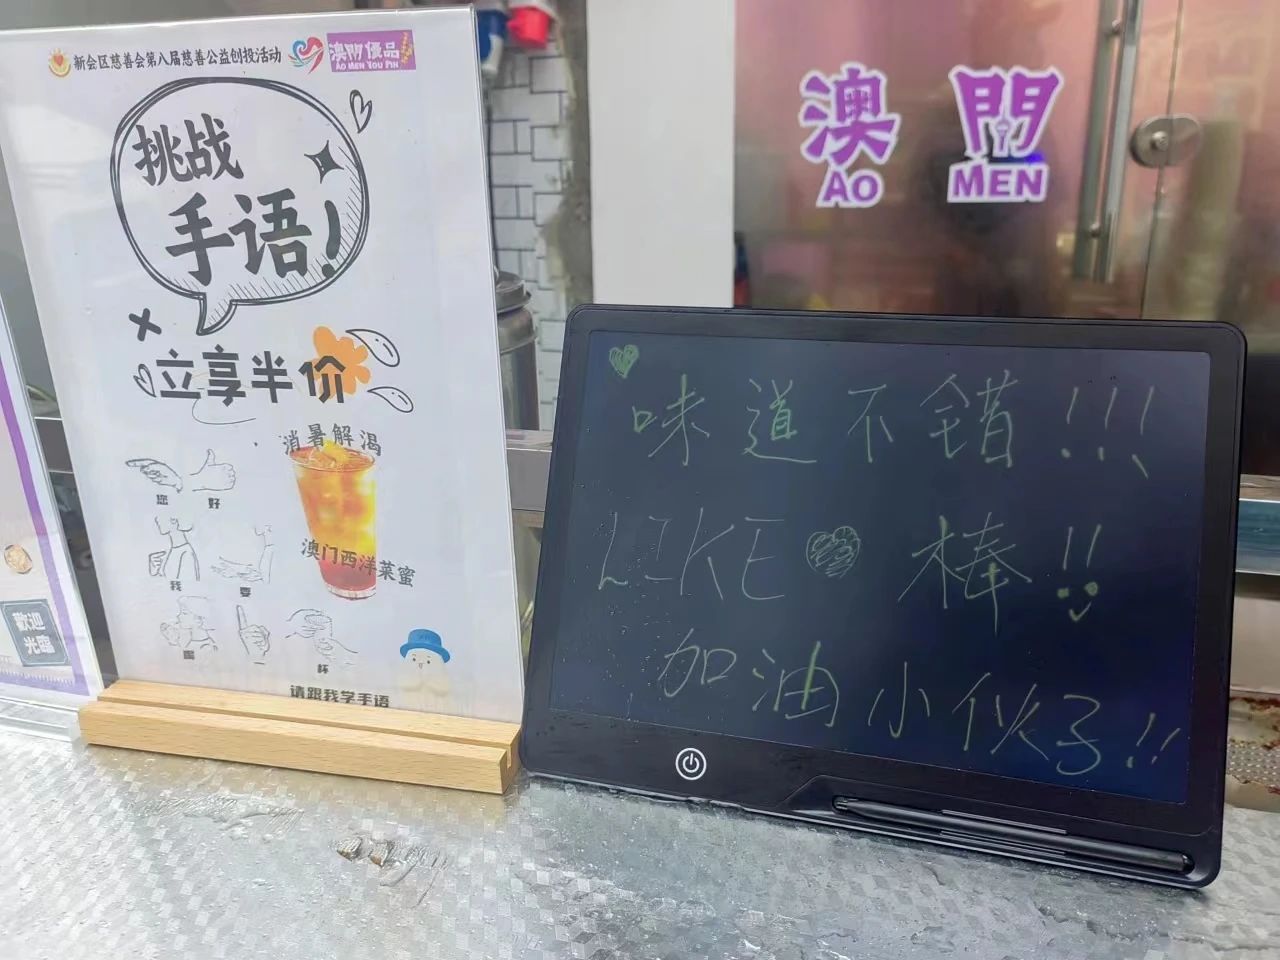 新会区慈善会第八届慈善公益创投活动
澳門優品
AO MEN YOU PIN
挑战
手语!
立享半价
消暑解渴
您 好
澳门西洋菜蜜
我 要
一 杯
请跟我学手语
歡迎
光臨
澳 門
AO MEN
味道不错!!!
LIKE 棒!!
加油小伙子!!